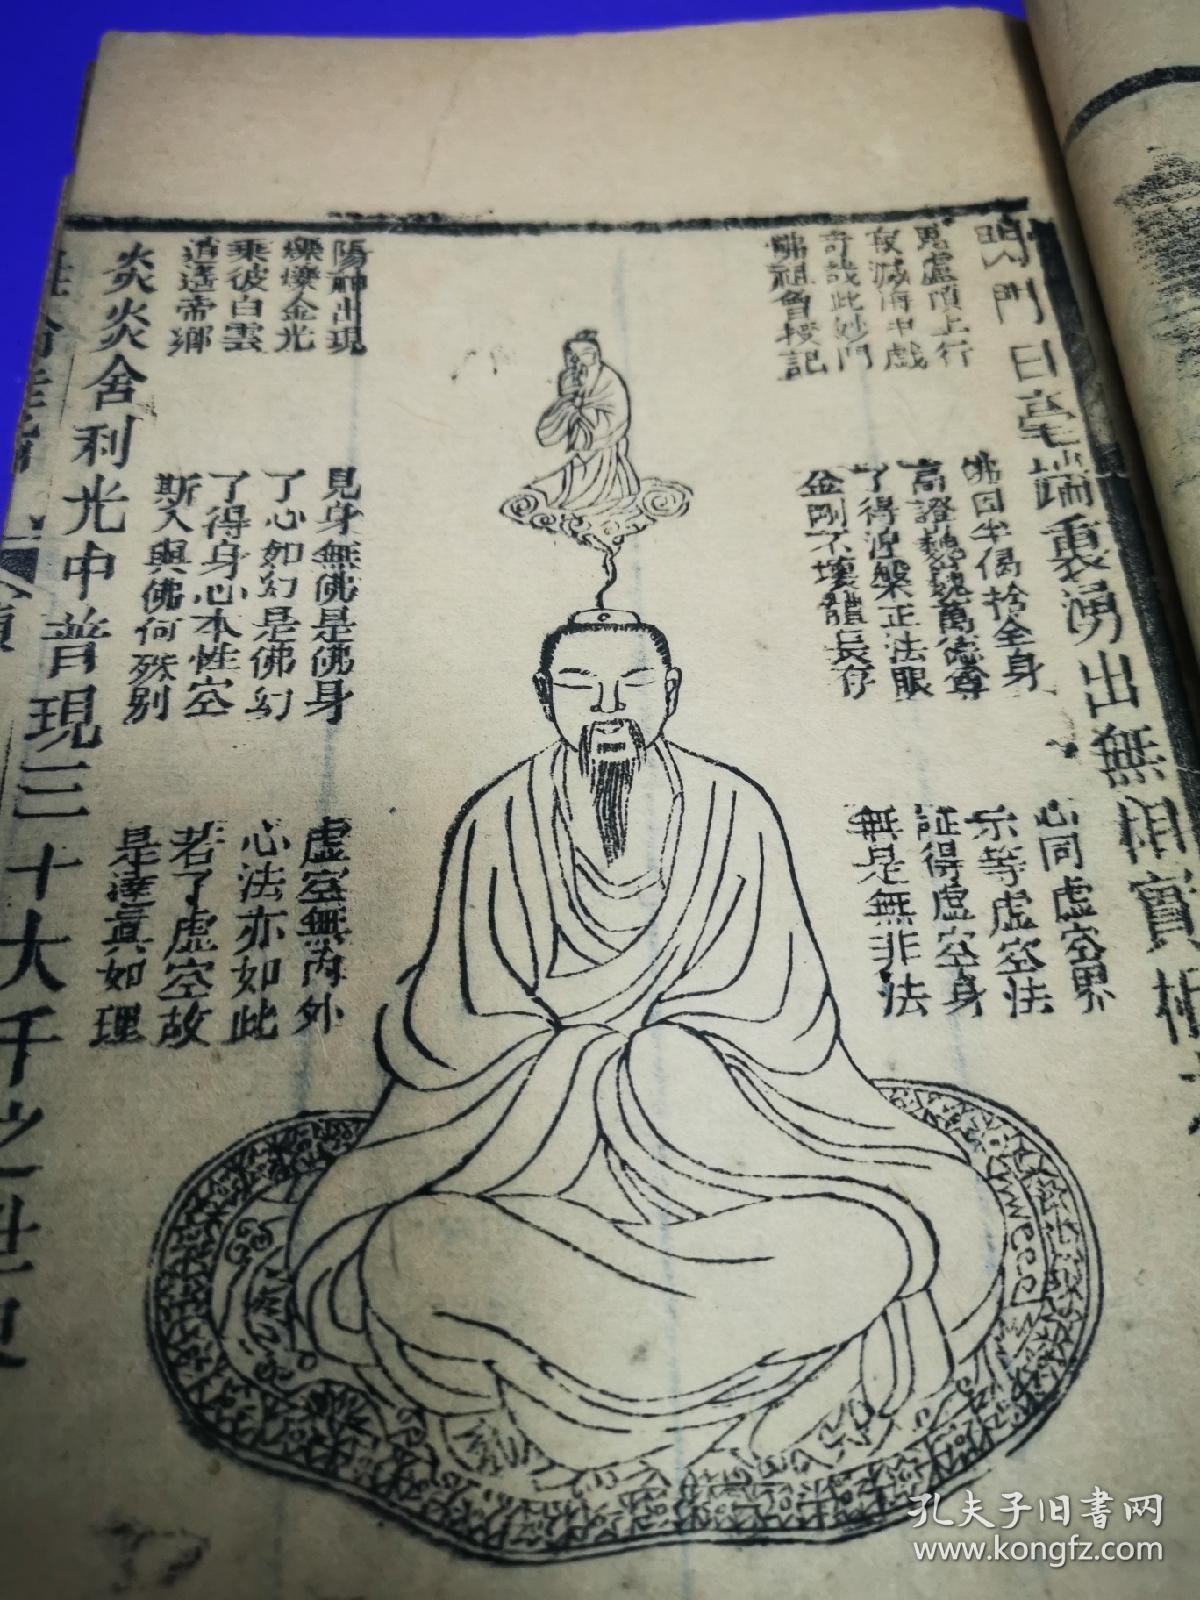 閃閃白毫端裏湧出無相實相
思虛頂上行
寂滅海中戲
奇哉此妙門
佛祖曾授記
佛因半偈捨全身
高證巍巍萬德尊
了得涅槃正法眼
金剛不壞體長存
心同虛空界
示等虛空法
証得虛空身
無是無非法
陽神出現
爍爍金光
乘彼白雲
逍遙帝鄉
見身無佛是佛身
了心如幻是佛幻
了得身心本性空
斯人與佛何殊別
虛空無內外
心法亦如此
若了虛空故
是達真如理
炎炎舍利光中普現三千大千之世界
孔夫子旧书网
www.kongfz.com